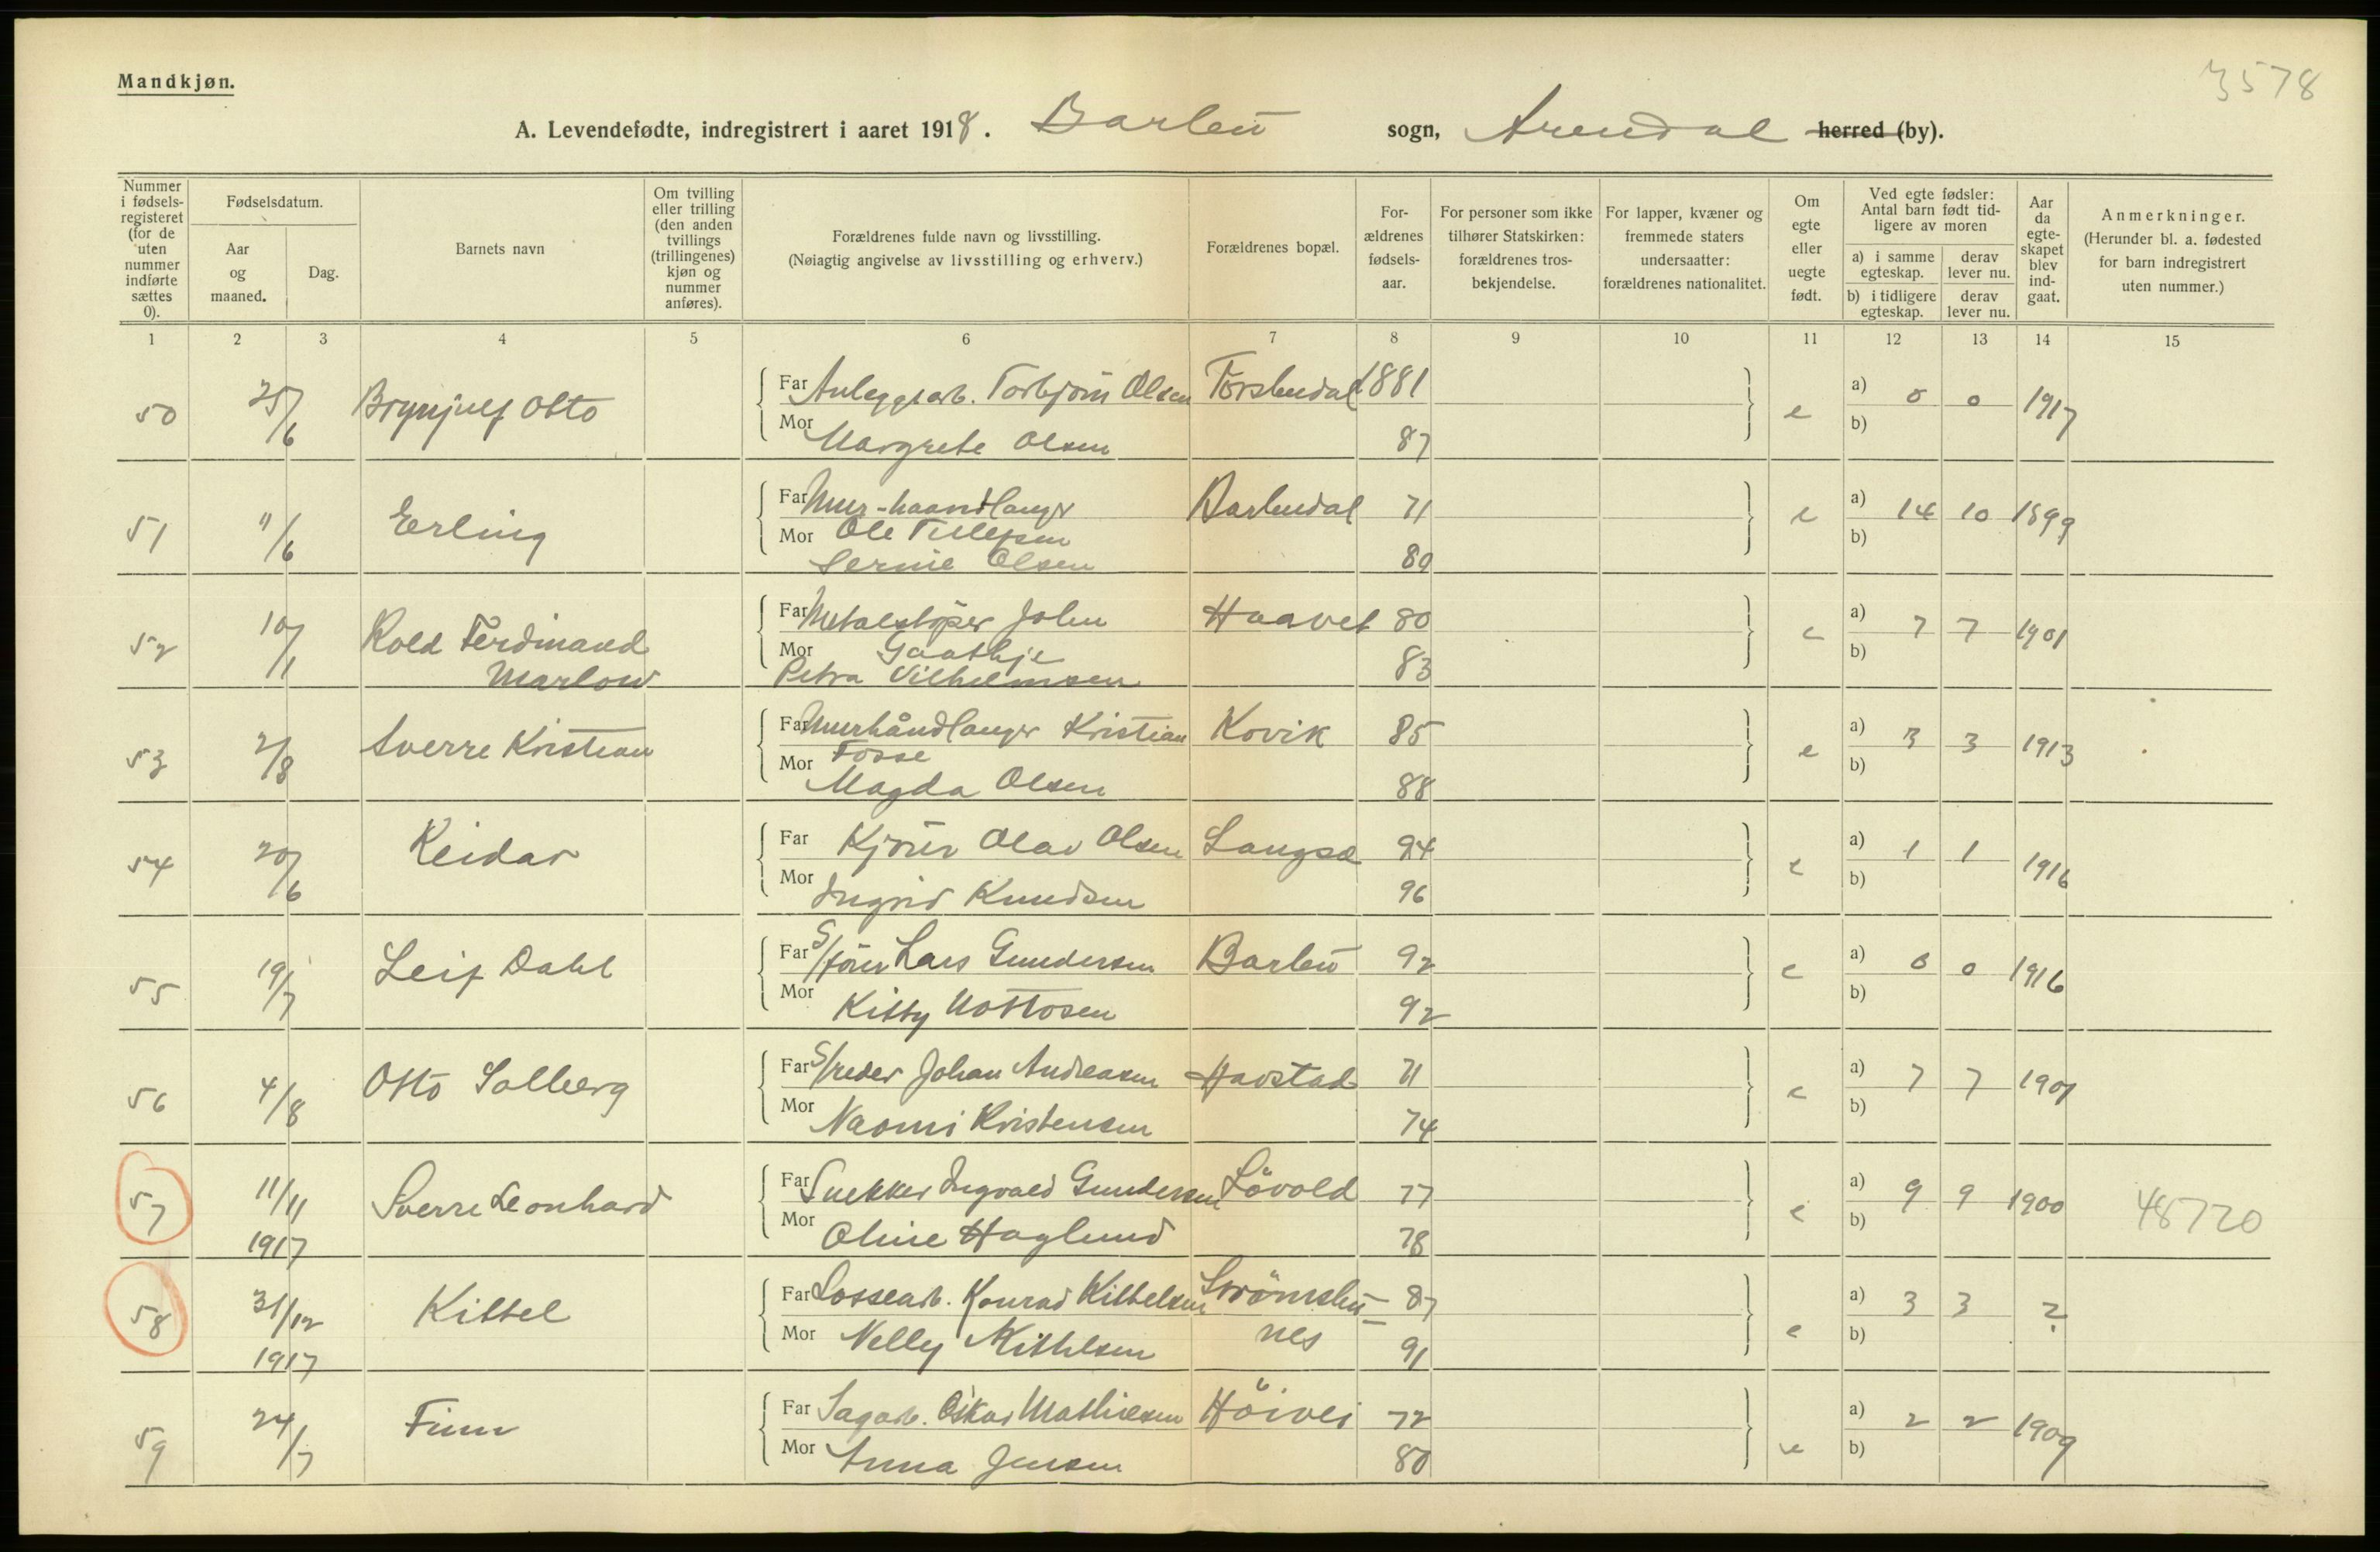 3578
Mandkjøn.
A. Levendefødte, indregistrert i aaret 1918. Barbu sogn, Arendal herred (by).
Nummer i fødsels-registeret (for de uten nummer indførte sættes 0).
Fødselsdatum.
Aar og maaned.
Dag.
Barnets navn
Om tvilling eller trilling (den anden tvillings (trillingenes) kjøn og nummer anføres).
Forældrenes fulde navn og livsstilling.
(Nøiagtig angivelse av livsstilling og erhverv.)
Forældrenes bopæl.
For-ældrenes fødsels-aar.
For personer som ikke tilhører Statskirken: forældrenes tros-bekjendelse.
For lapper, kvæner og fremmede staters undersaatter: forældrenes nationalitet.
Om egte eller uegte født.
Ved egte fødsler: Antal barn født tid-ligere av moren
a) i samme egteskap.
derav lever nu.
b) i tidligere egteskap.
derav lever nu.
Aar da egte-skapet blev ind-gaat.
Anmerkninger.
(Herunder bl. a. fødested for barn indregistrert uten nummer.)
1 2 3 4 5 6 7 8 9 10 11 12 13 14 15
50 25/6 Brynjulf Otto Far Anleggsarb. Torbjørn Olsen 1881 e a) 0 0 1917
Mor Margrete Olsen 87 b)
51 11/6 Erling Far Mur-haandlanger Barbudal 71 e a) 14 10 1899
Mor Ole Tellefsen b)
Serine Olsen 80
52 10/1 Rold Ferdinand Far Metalstøper John Haavet 80 e a) 7 7 1901
Marlow Mor Gaathje b)
Petra Vilhelmsen 83
53 2/8 Sverre Kristian Far Murhåndlanger Kristian Kovik 85 e a) 3 3 1913
Mor Fosse b)
Magda Olsen 88
54 20/6 Reidar Far Kjører Olav Olsen Langsæ 94 e a) 1 1 1916
Mor Ingrid Knudsen 96 b)
55 19/7 Leif Dahl Far S/fører Lars Gundersen Barbu 92 e a) 0 0 1916
Mor Kitty 92 b)
56 4/8 Otto Solberg Far S/reder Johan Andreasen Havstad 71 e a) 7 7 1901
Mor Naomi Kristensen 74 b)
57 11/11 Sverre Leonhard Far Snekker Ingvald Gundersen Løvold 77 e a) 9 9 1900 48720
1917 Mor Oline Haglund 78 b)
58 31/12 Kittel Far Lossearb. Konrad Kittelsen Strömsbu- 87 e a) 3 3 ?
1917 Mor Nelly nes 91 b)
59 24/7 Finn Far Sagarb. Oskar Mathisen Höivei 72 e a) 2 2 1909
Mor Anna Jensen 80 b)